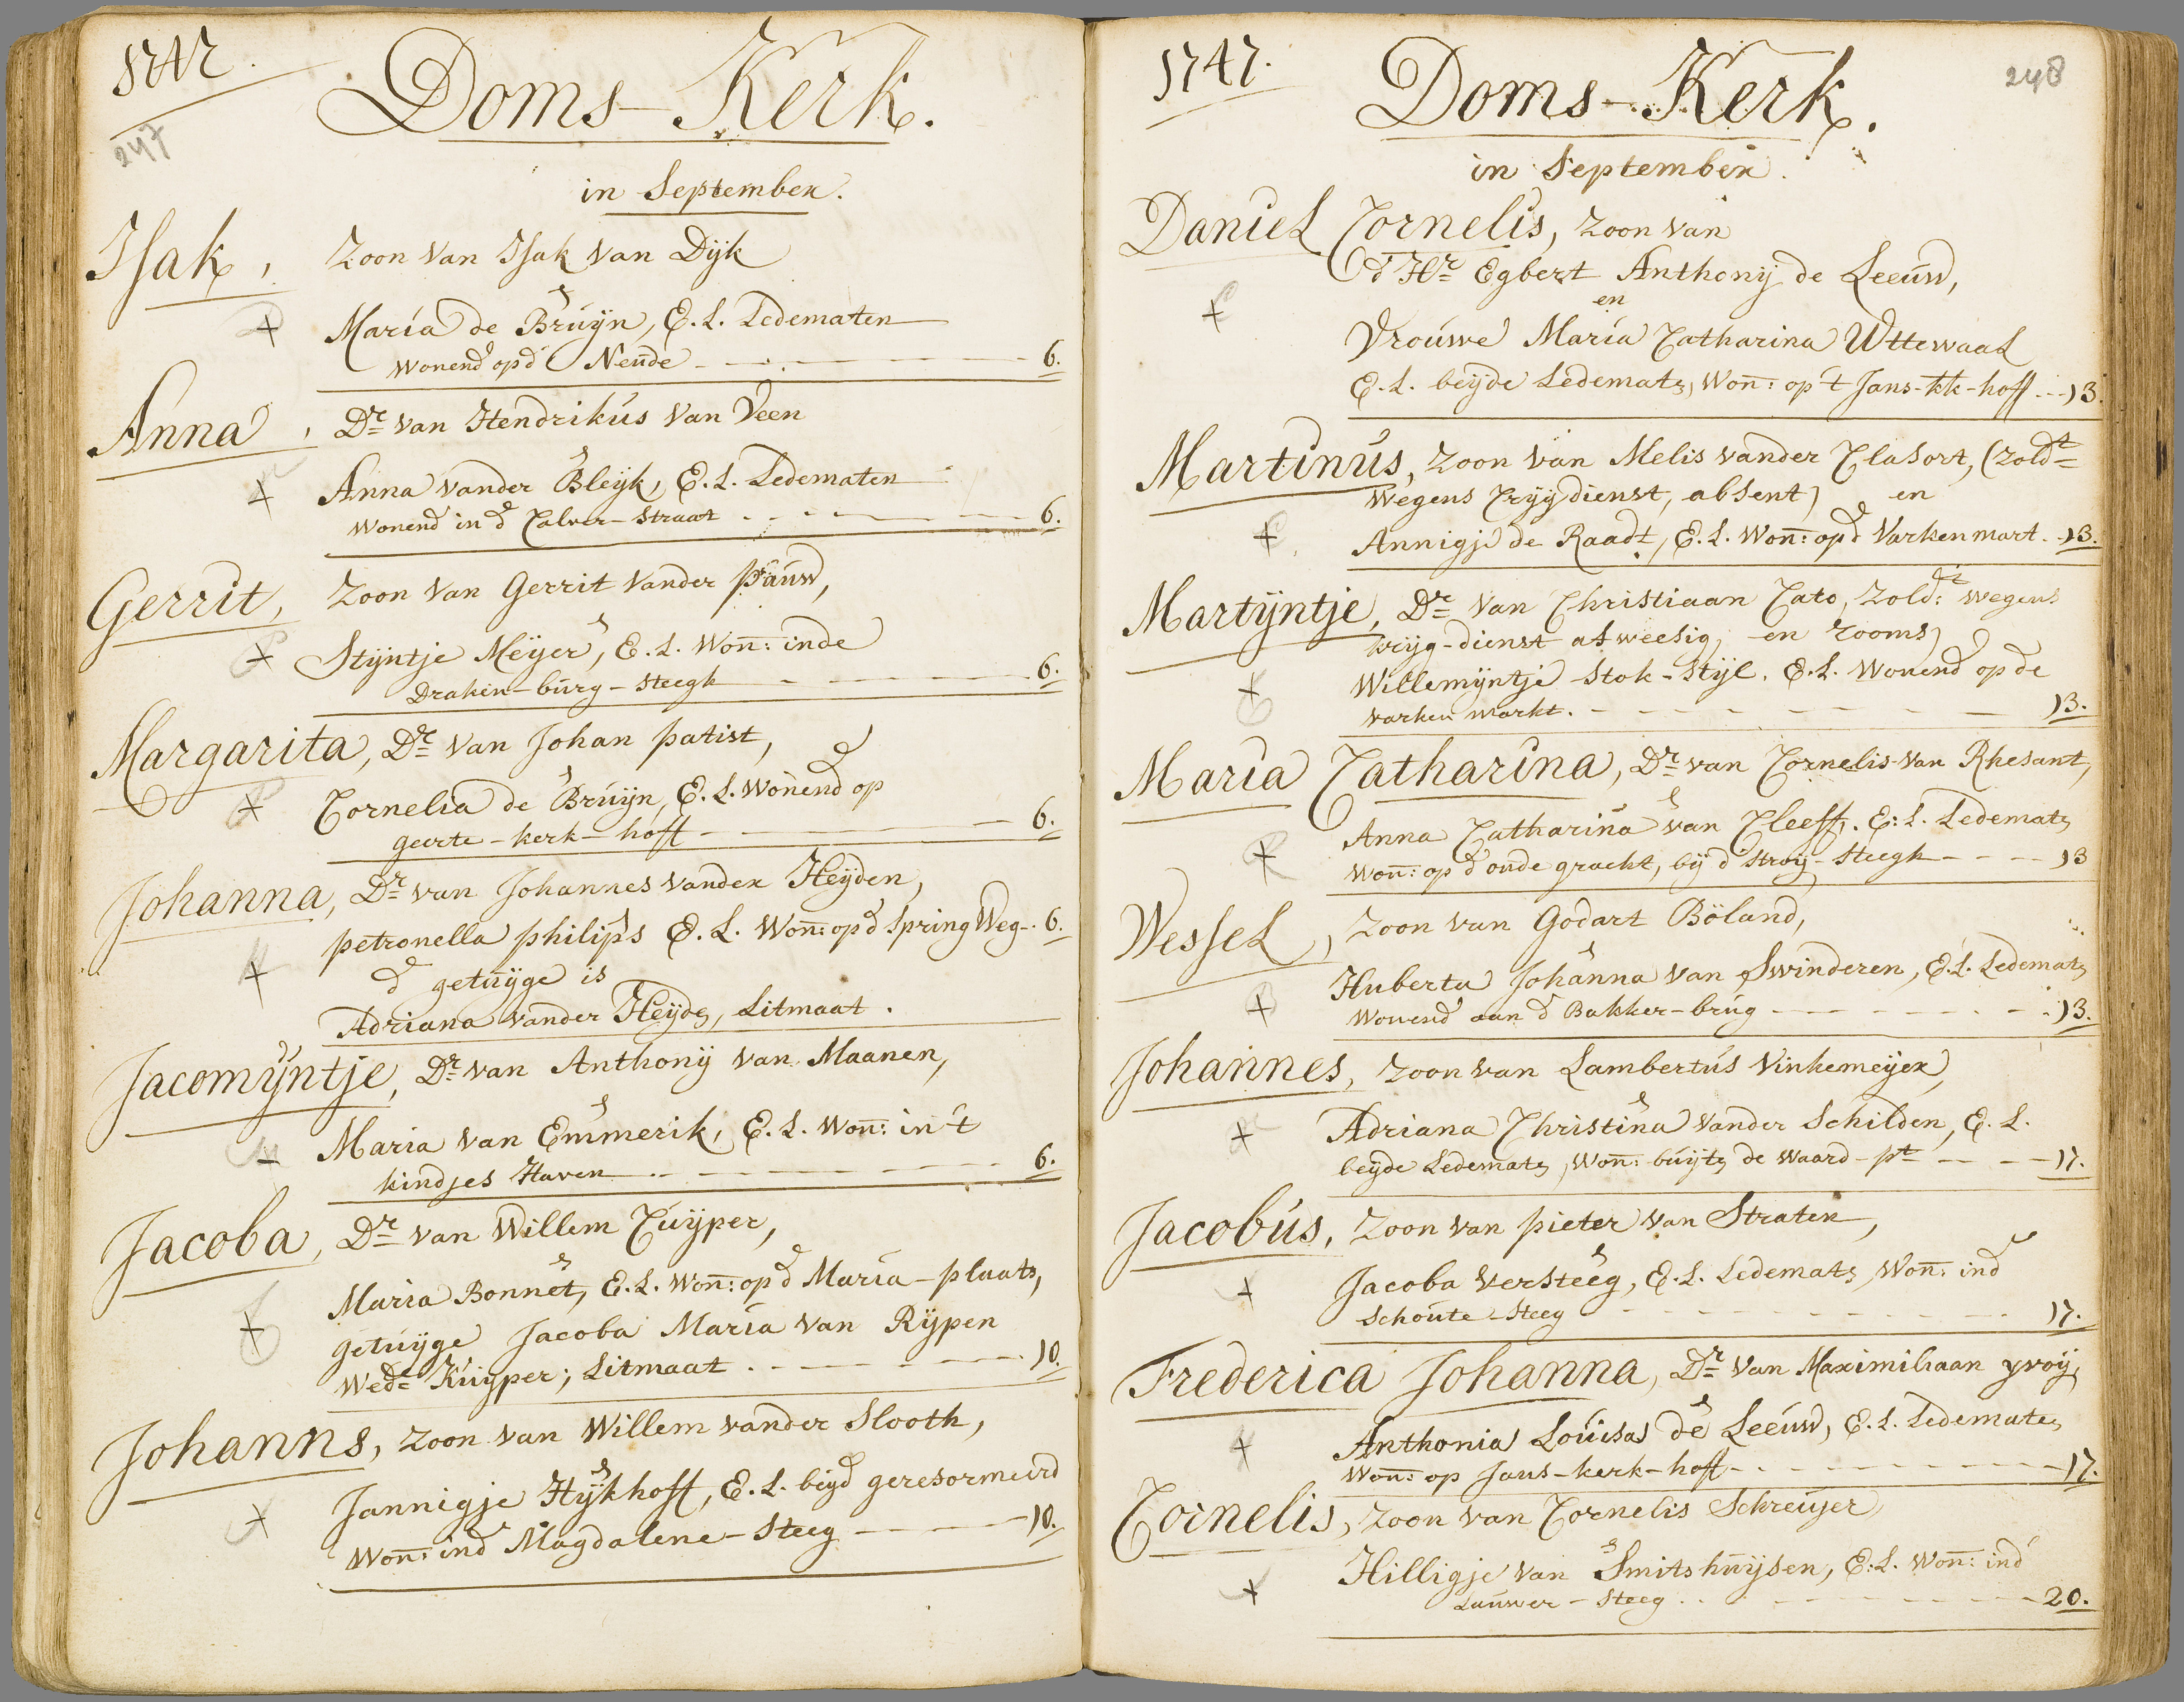 1747.
247
Doms-Kerk.
in September.
Isak, Zoon van Isak van Dijk
&
Maria de Bruijn, E.L. Ledematen
wonend op d' Neude 6.
Anna, Dr van Hendrikus van Veen
&
Anna vander Bleijk, E.L. Ledematen
wonend in d' Calver-straat 6.
Gerrit, Zoon van Gerrit vander pauw,
&
Stijntje Meijer, E.L. Won: inde
Draken-burg-steegh 6.
Margarita, Dr van Johan patist,
&
Cornelia de Bruijn, E.L. wonend op
geerte-kerk-hoff 6.
Johanna, Dr van Johannes vander Heijden,
&
petronella philips E.L. Won: op d' Spring Weg 6.
d' getuijge is
Adriana vander Heijden, Litmaat.
Jacomijntje, Dr van Anthonij van Maanen,
&
Maria van Emmerik, E.L. Won: in 't
kindjes Haven 6.
Jacoba, Dr van Willem Cuijper,
&
Maria Bonnet, E.L. Won: op d' Maria-plaats,
getuijge Jacoba Maria van Rijpen
Wede Kuijper; Litmaat 10.
Johanns, Zoon van Willem vander Slooth,
&
Jannigje Hijkhoff, E.L. beijd' gereformeerd
Won: in d' Magdalene-Steeg 10.
1747.
248
Doms-Kerk.
in September.
Daniel Cornelis, Zoon van
d' Hr Egbert Anthonij de Leeuw,
en
Vrouwe Maria Catharina Uttewaal
E.L. beijde Ledematen, Won: op 't Jans-kk-hoff 13.
Martinus, Zoon van Melis vander Clasort, (Zoldt
wegens Crijgdienst, absent) en
Annigje de Raadt, E.L. Won: op d' Varkenmart 13.
Martijntje, Dr van Christiaan Cato, Zoldt: wegens
krijg-dienst afweesig, en rooms)
Willemijntje Stok-Stijl. E.L. Wonend op de
varken markt. 13.
Maria Catharina, Dr van Cornelis van Rhesant,
&
Anna Catharina van Cleeff. E:L. Ledematen
Won: op d' oude gracht, bij d' Stroij-Steegh 13
Wessel, Zoon van Godart Böland,
&
Huberta Johanna van Swinderen, E.L. Ledematen
Wonend aan d' Bakker-brug 13.
Johannes, Zoon van Lambertus Vinkemeijer,
&
Adriana Christina vander Schilden, E.L.
beijde Ledematen, Won: buijten de Waard-pt 17.
Jacobus, Zoon van pieter van Straten,
&
Jacoba Versteeg, E.L. Ledematen, Won: in d'
Schoute-Steeg 17.
Frederica Johanna, Dr van Maximiliaan yvoij,
&
Anthonia Louisa de Leeuw, E.L. Ledematen
Won: op Jans-kerk-hoff 17.
Cornelis, Zoon van Cornelis Schreuijer
&
Hilligje van Smitshuijsen, E:L. Won: in d'
Lauwer-Steeg 20.